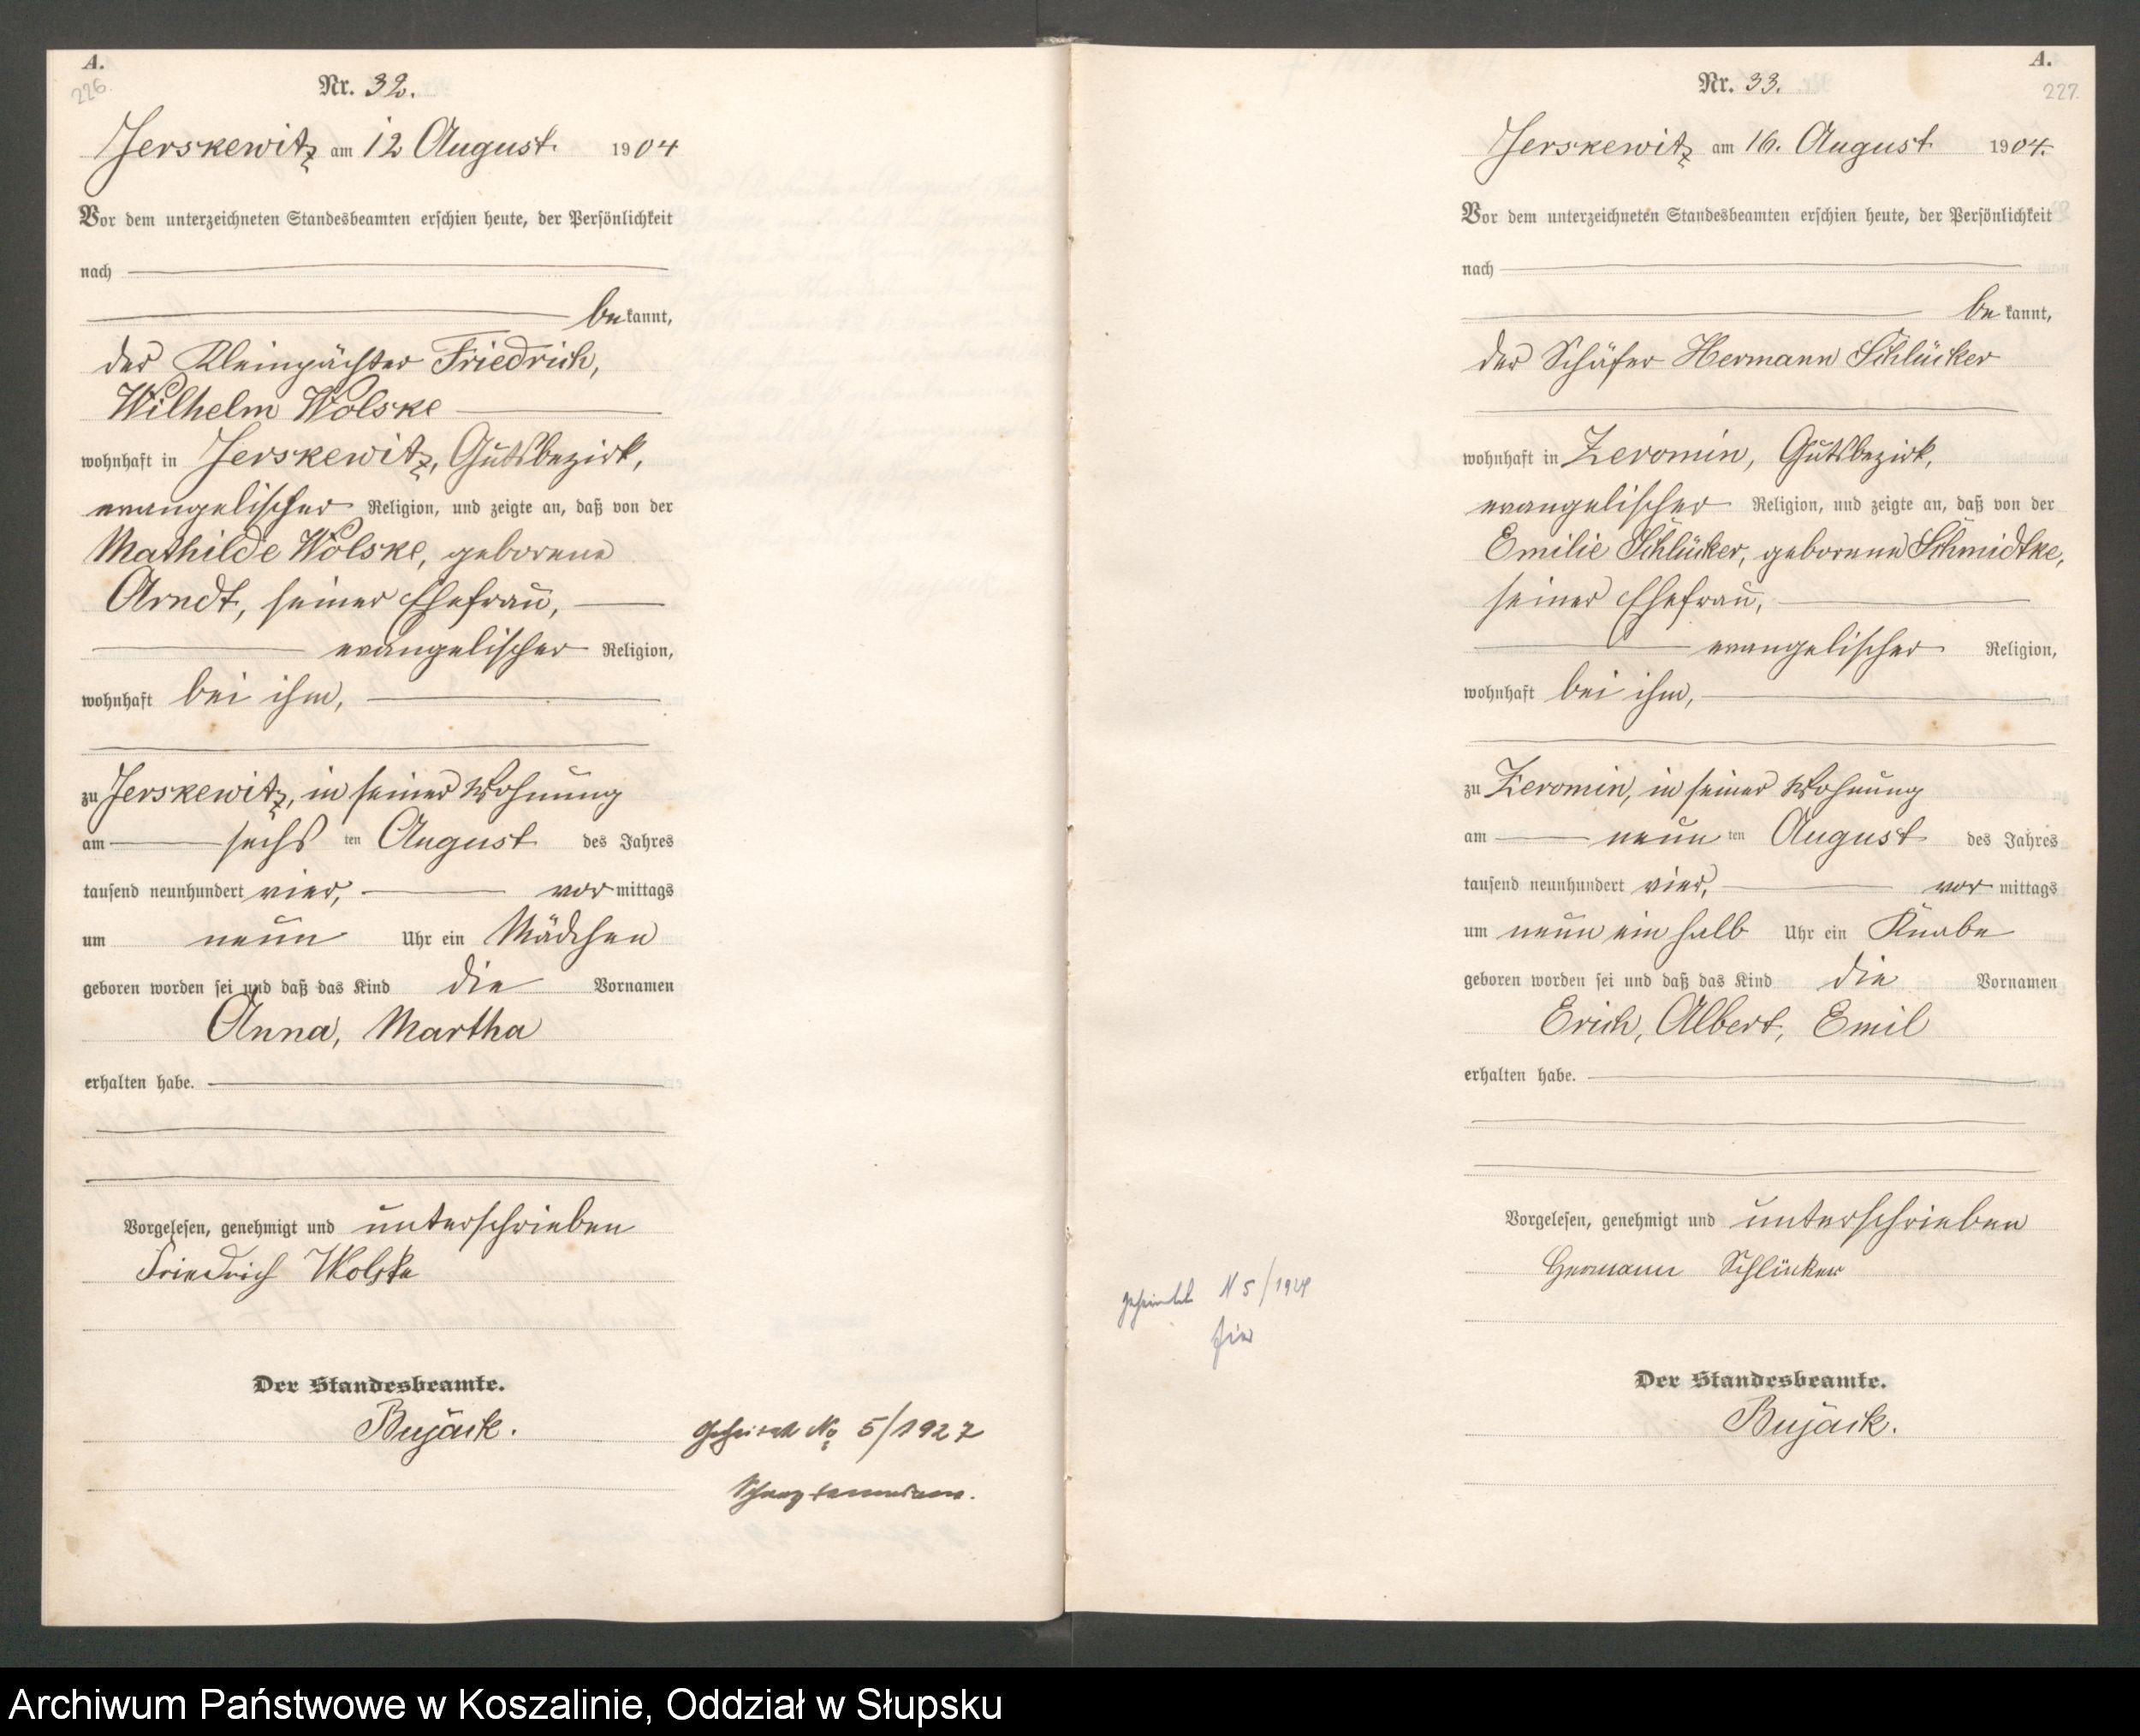 A.
226.
Nr. 32.
Jerskewitz am 12 August. 1904
Vor dem unterzeichneten Standesbeamten erschien heute, der Persönlichkeit
nach
bekannt,
der Kleinpächter Friedrich,
Wilhelm Wolske
wohnhaft in Jerskewitz, Gutsbezirk,
evangelischer Religion, und zeigte an, daß von der
Mathilde Wolske, geborene
Arndt, seiner Ehefrau,
evangelischer Religion,
wohnhaft bei ihm,
zu Jerskewitz, in seiner Wohnung
am sechsten August des Jahres
tausend neunhundert vier, vormittags
um neun Uhr ein Mädchen
geboren worden sei und daß das Kind die Vornamen
Anna, Martha
erhalten habe.
Vorgelesen, genehmigt und unterschrieben
Friedrich Wolske
Der Standesbeamte.
Bujack.
Geheirat No 5/1927
A.
227.
Nr. 33.
Jerskewitz am 16. August 1904.
Vor dem unterzeichneten Standesbeamten erschien heute, der Persönlichkeit
nach
bekannt,
der Schäfer Hermann Schlücker
wohnhaft in Zeromin, Gutsbezirk,
evangelischer Religion, und zeigte an, daß von der
Emilie Schlücker, geborene Schmidtke,
seiner Ehefrau,
evangelischer Religion,
wohnhaft bei ihm,
zu Zeromin, in seiner Wohnung
am neunten August des Jahres
tausend neunhundert vier, vormittags
um neun ein halb Uhr ein Knabe
geboren worden sei und daß das Kind die Vornamen
Erich, Albert, Emil
erhalten habe.
Vorgelesen, genehmigt und unterschrieben
Hermann Schlücker
N 5/1929
Der Standesbeamte.
Bujack.
Archiwum Państwowe w Koszalinie, Oddział w Słupsku